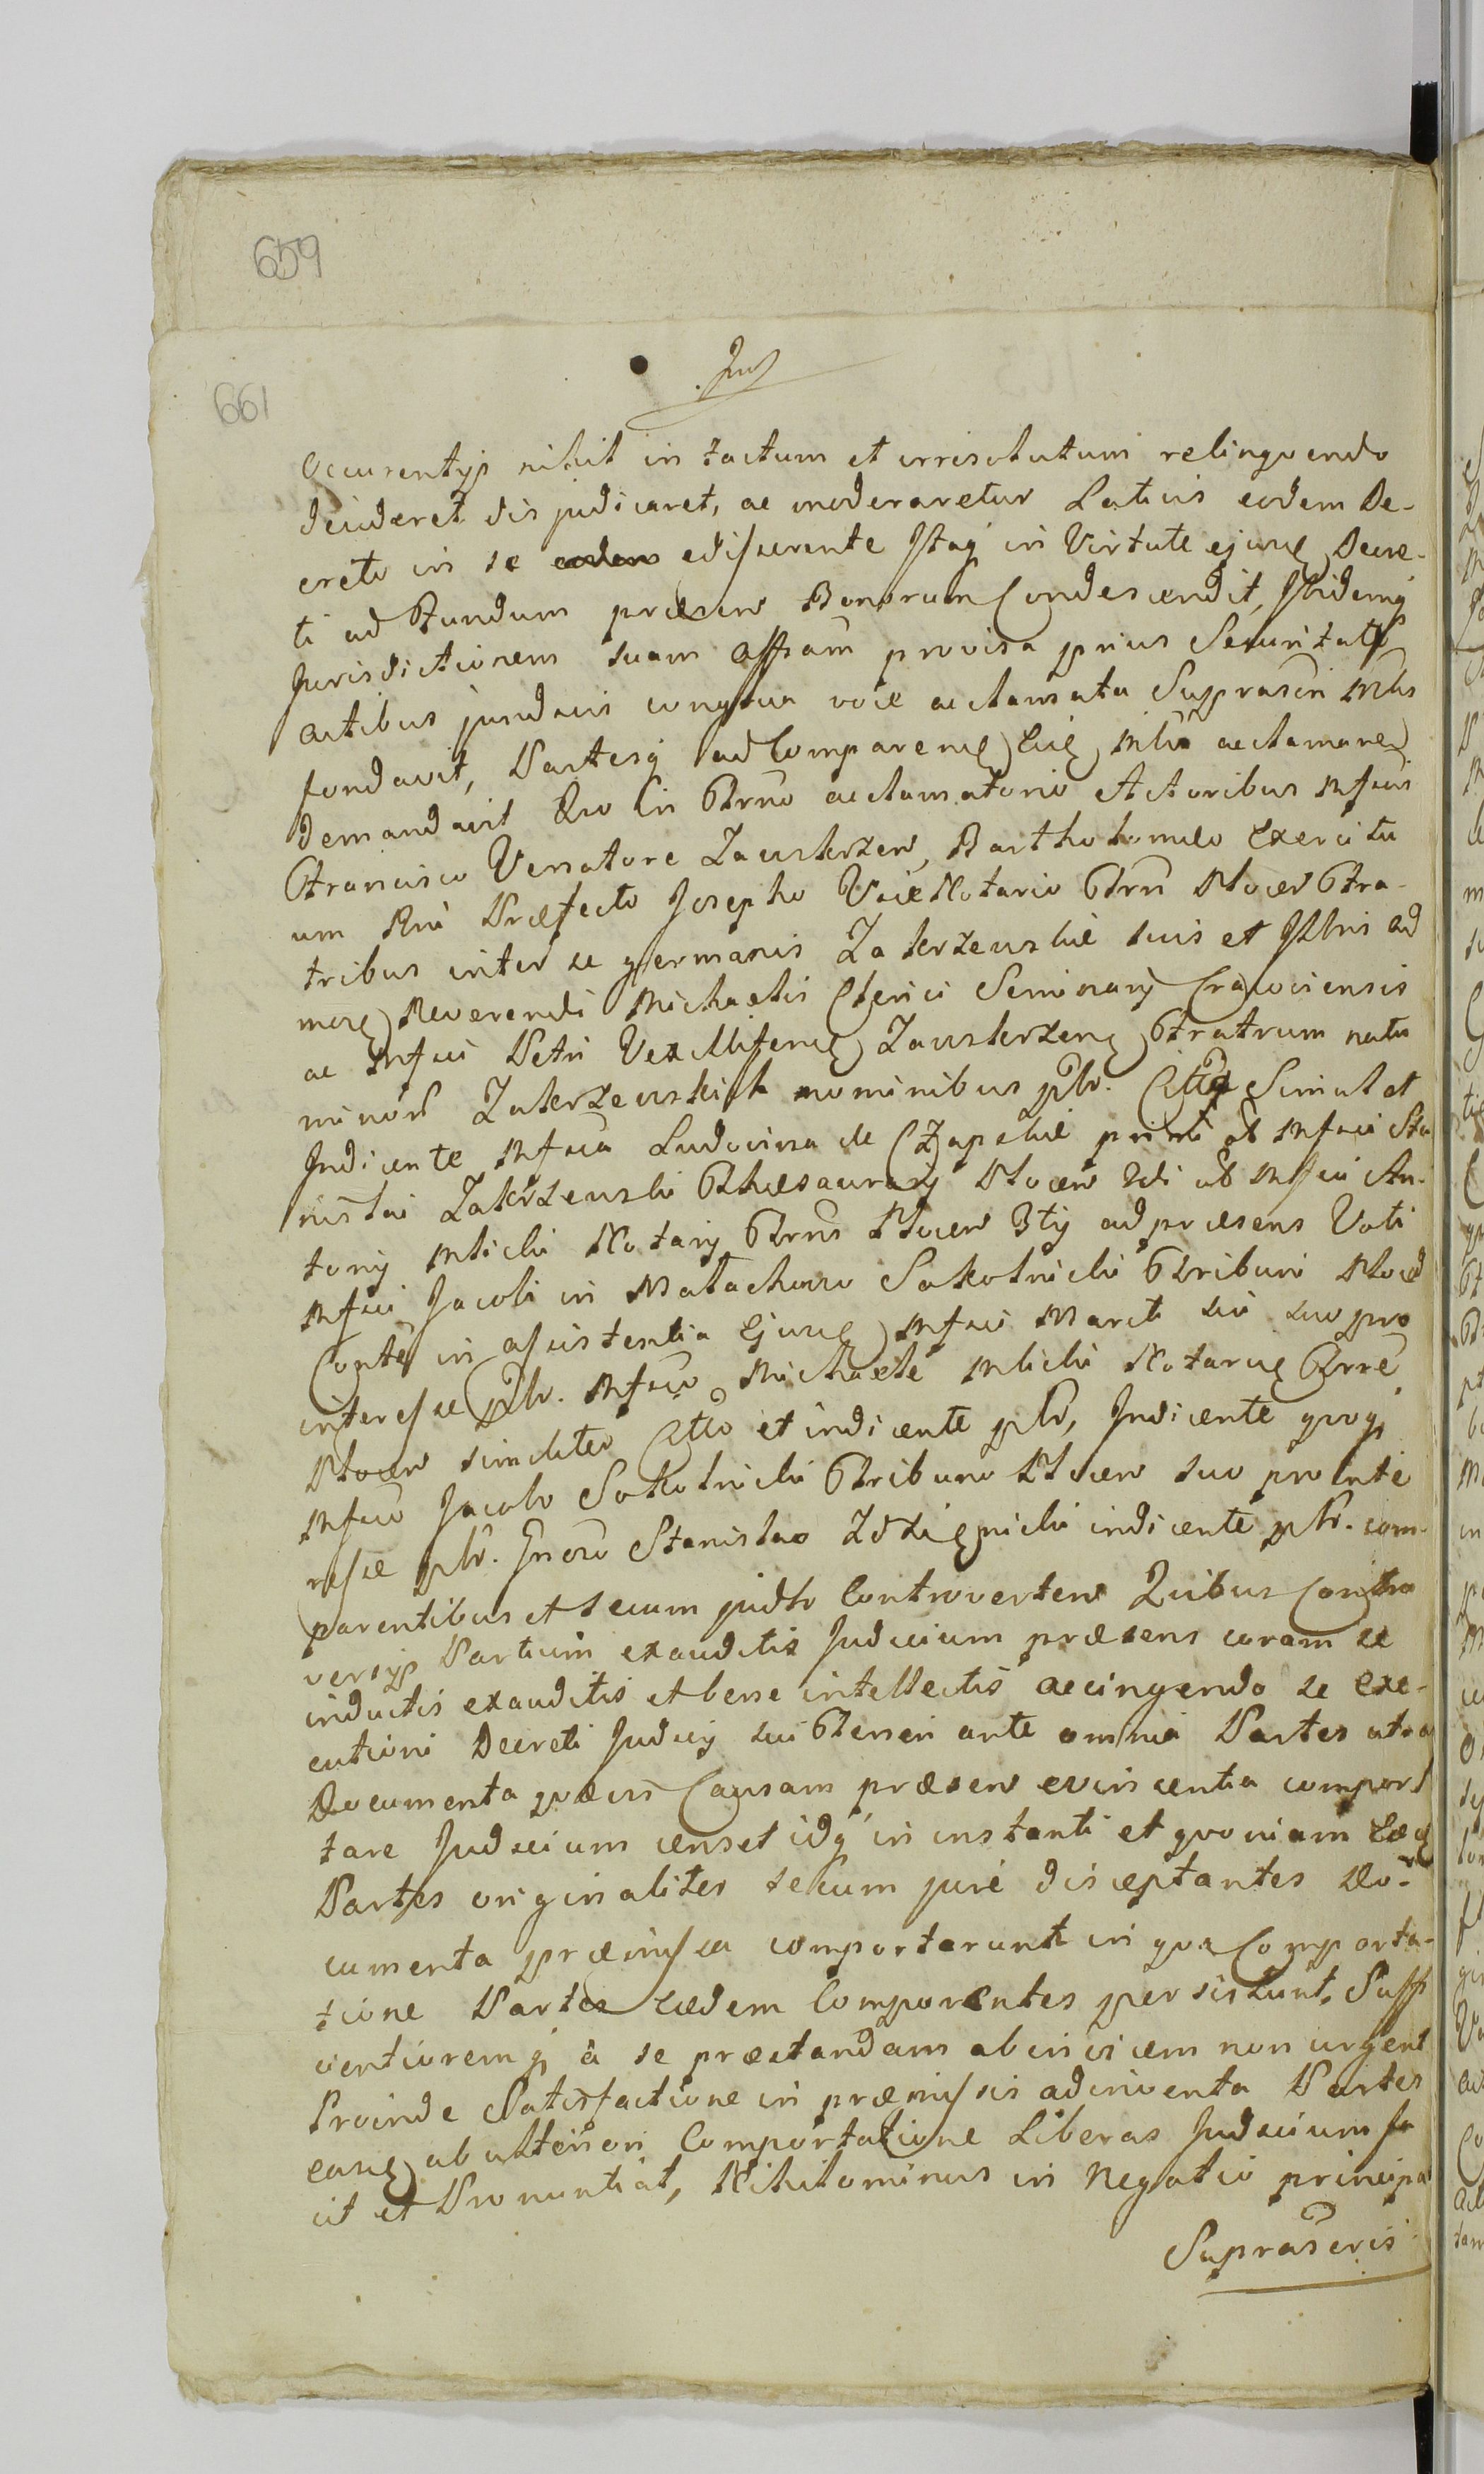 659
661
Occurentÿs nihil in tactum et irrisolutum relinqvendo
decideret dis judicaret, ac moderaretur Latius eodem De-
creto in se edisserente Itaq in Virtute ejusq Decre-
ti ad Fundum præsen Bonorum Condescendit, Ibidemq
Jurisdictionem suam offsam provisa prius Securitate
actibus judaiis congrua voce acclamata Suprascri Mbs
fondavit, Partesq ad Comparend acclamand
demandavit Qvo in Trno acclamatorio Actoribus Mfcis
Francisco Venatore Zawskrzen, Bartholomeo Exercitu
um Rni Præfecto Josepho Vice Notario Trn Plocen Fra-
tribus inter se germanis Zakrzewskie suis et Illris ad
mos Reverendi Michaelis Clerici Seminarÿ Cracoviensis
ac Mfci Petri Vexilliferi Zawskrzen Fratrum natu
minor Zakrzewskich nominibus plr. Simul et
Indicente Mfca Ludovina de Czapskie primi ab Mfci Sta
nislai Zakrzewski Thesaurarÿ Plocen 2di ab Mfci An-
tonÿ Mlicki Notarÿ Trns Plocen 3tÿ ad præsens Voti
Mfci Jacobi in Malachowo Sokolnicki Tribuni Ploc
Conte in assistentia Ejusq Mfci Mariti sui suo pro
interesse plr. Mfco Michaele Mlicki Notario Trre
Plocen similiter Citto et indicente plr, Indicente qvoq
Mfco Jacobo Sokolnicki Tribuno Plocen suo pro Inte
resse plr. Gnoso Stanislao Zdzięnicki indicente plr. com-
parentibus et secum judtr Controverten Qvibus Contro
versÿs Partium exauditis Judicium præsens coram se
inductis exauditis et bene intellectis accingendo se Exe-
cutioni Decreti Judicÿ sui Terren ante omnia Partes
Documenta qvævis Causam præsen evincentia compor
tare Judicium censet idq in instanti et qvoniam Eæd
Partes originaliter secum jure disceptantes Do-
cumenta præmissa comportarunt in qva Comporta-
tione Partes eædem Comparentes persistunt, Suffi
cientioremq à se præstandam abinvicem non urgent
Proinde Satisfactione in præmissis adinventa Partes
easq ab ulteriori Comportatione Liberas Judicium fa
cit et Pronuntiat, Nihilominus in Negotio principa
Suprascris